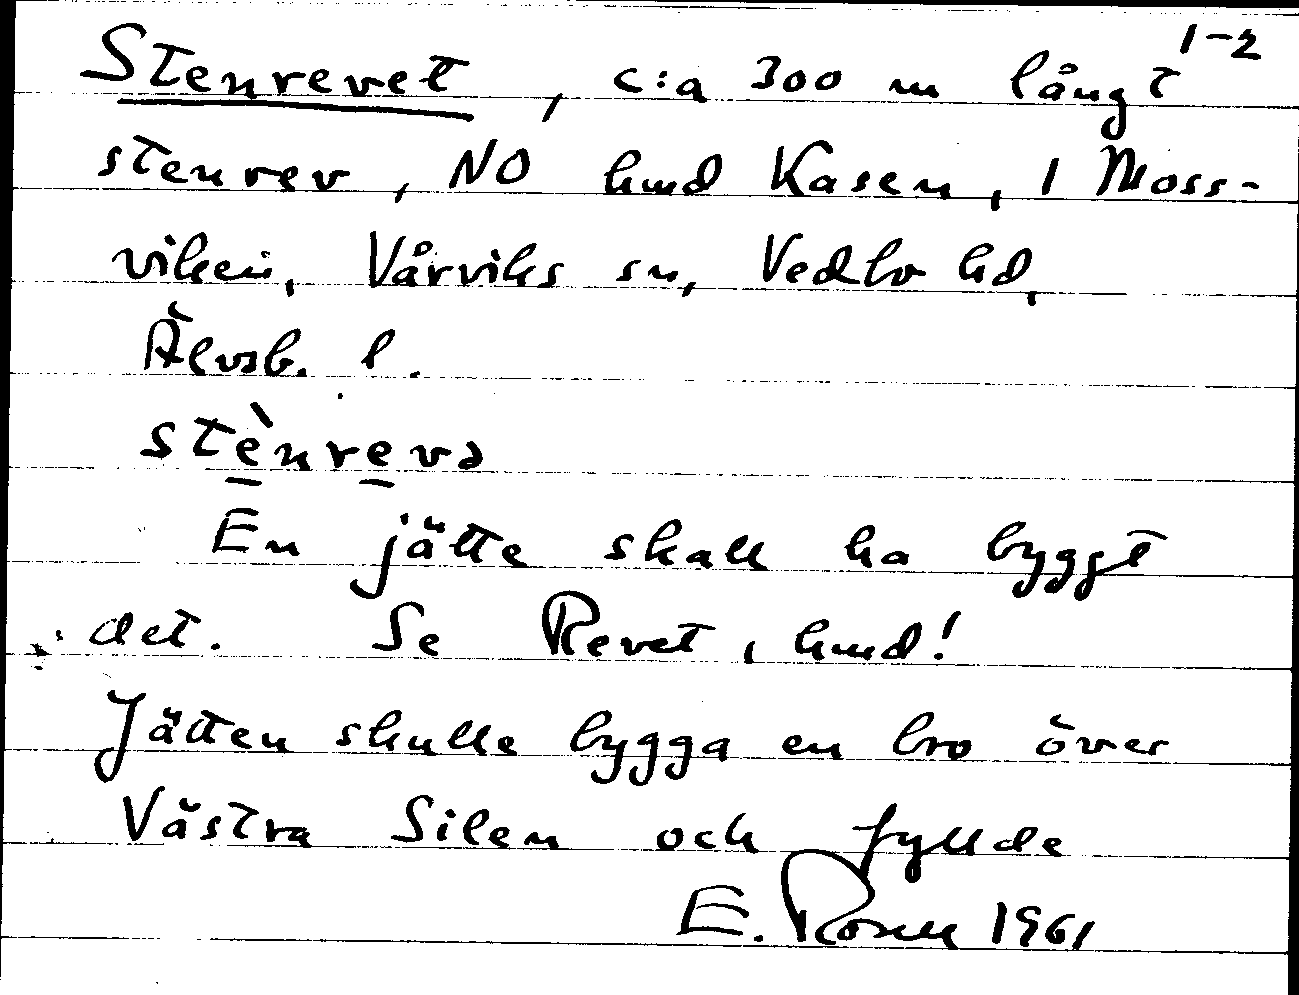 1-2
Stenrevet, c:a 300 m långt
stenrev, NO hmd Kasen, i Moss-
viken, Vårviks sn, Vedbo hd,
Älvsb. l.
stènrevə
En jätte skall ha byggt
det. Se Revet, hmd!
Jätten skulle bygga en bro över
Västra Silen och fyllde
E. 1961